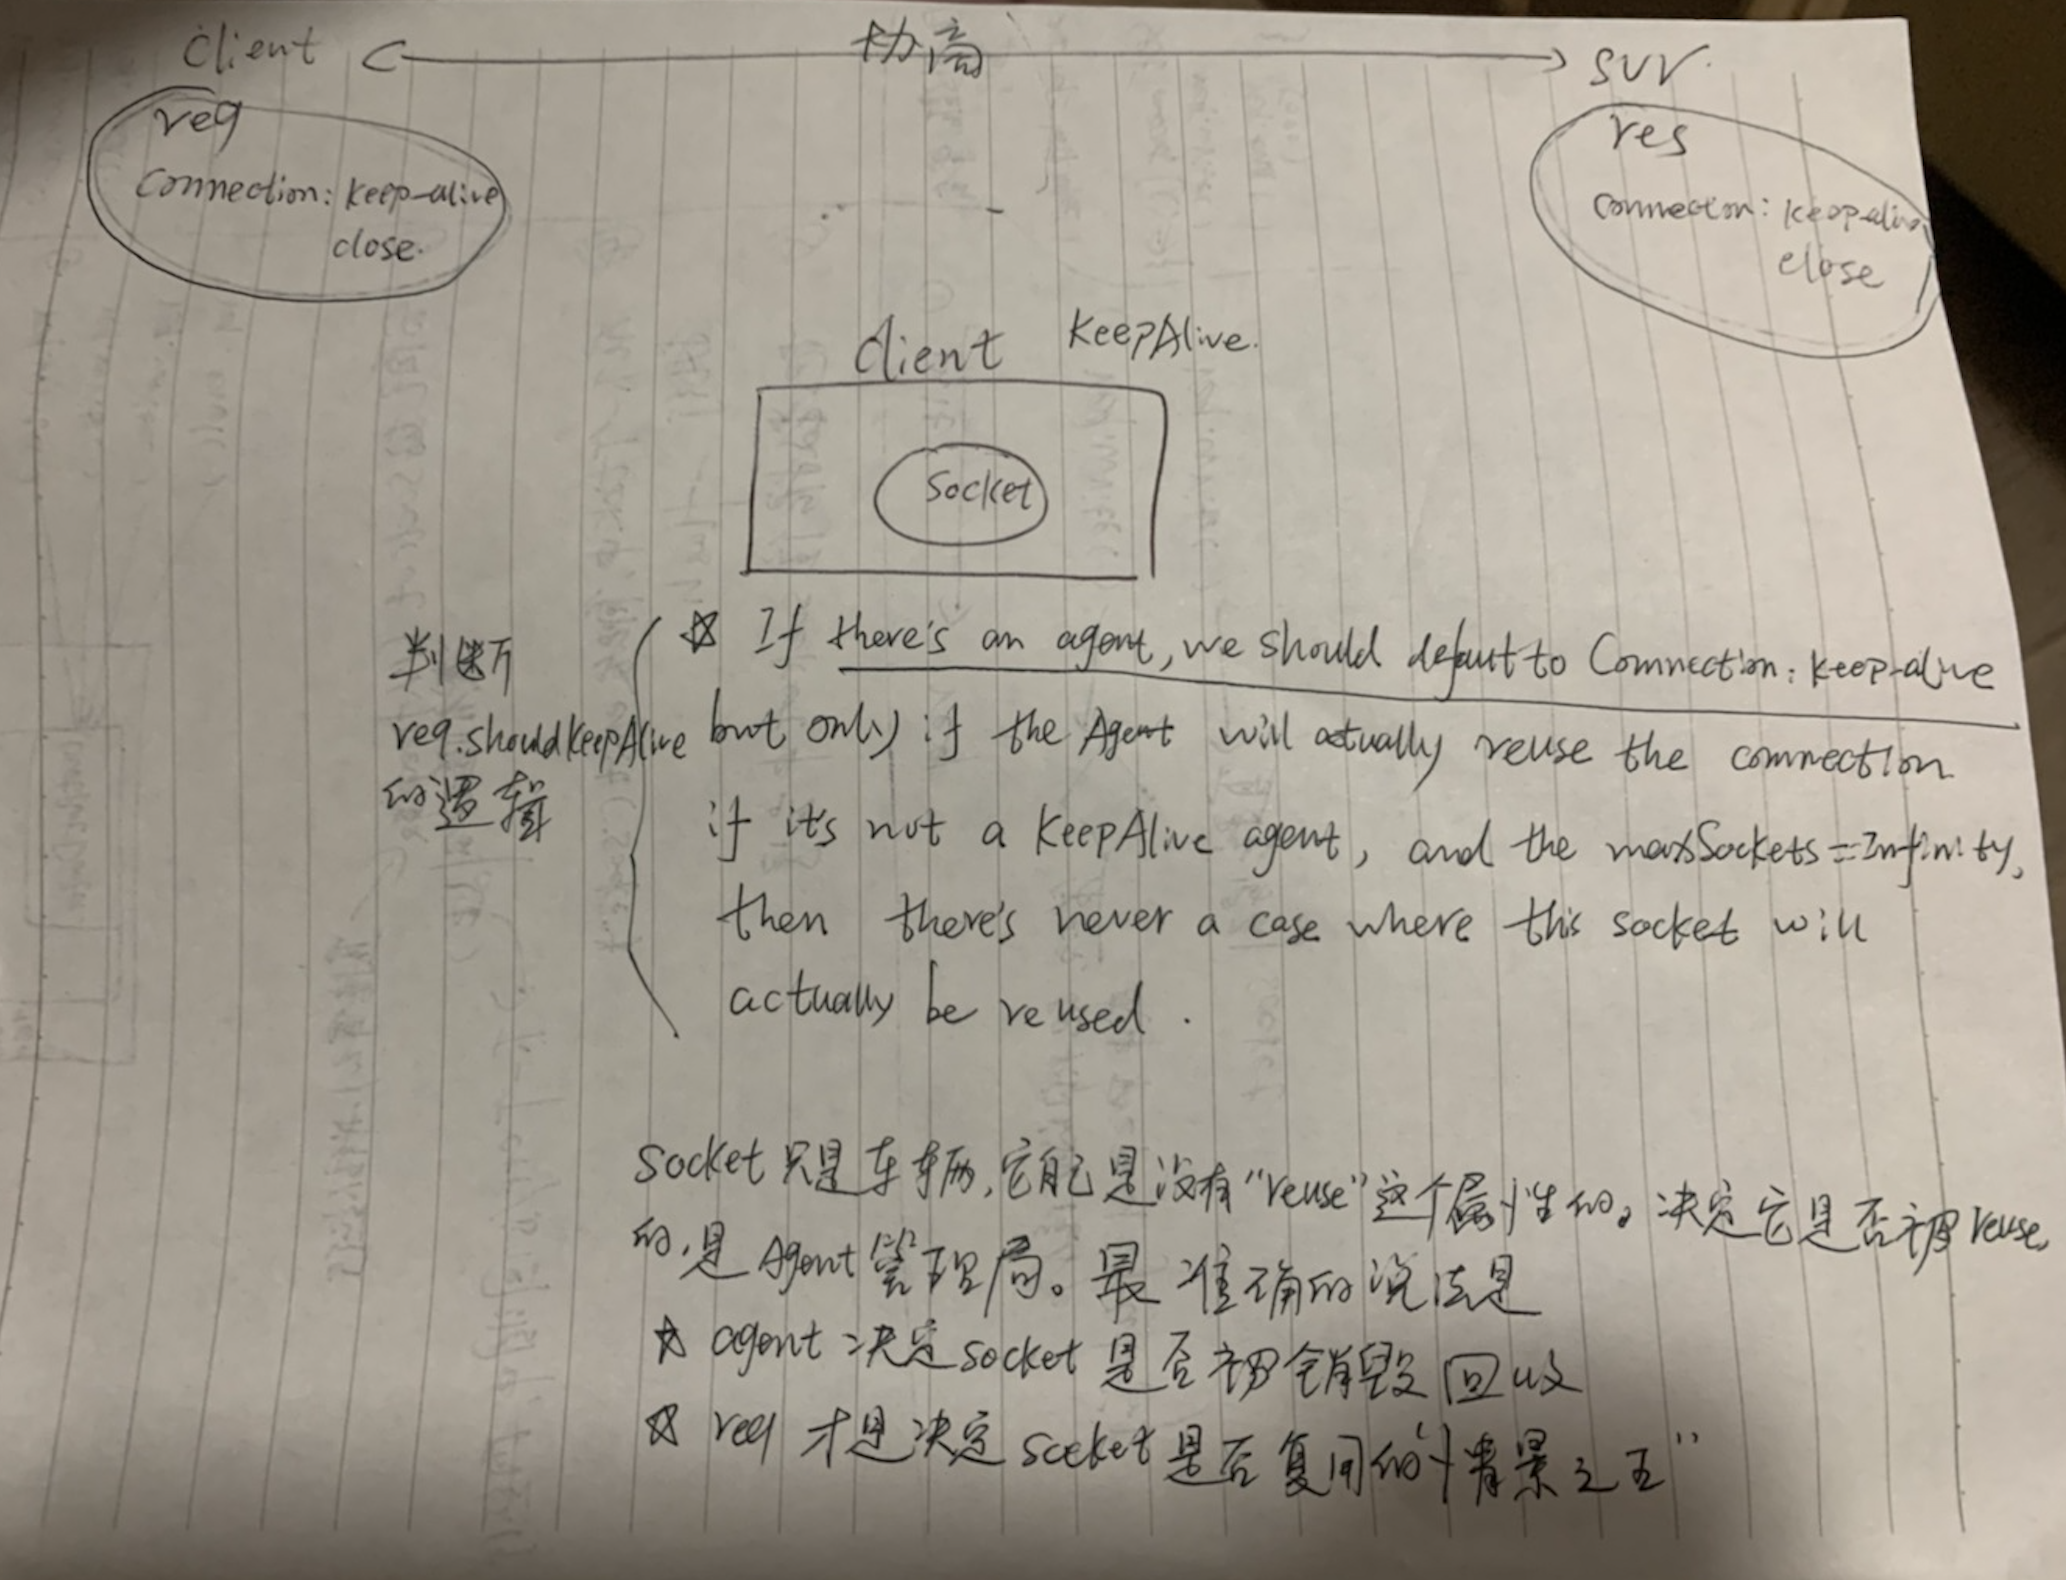 Client 协商 svr.
req
Connection: keep-alive
close.
res
Connection: keep-alive
close
Client KeepAlive.
Socket
判断
req.shouldKeepAlive
的逻辑
☆ If there's an agent, we should defaut to Connection: keep-alive
but only if the Agent will actually reuse the connection
if it's not a KeepAlive agent, and the maxSockets=Infinity,
then there's never a case where this socket will
actually be reused.
socket 只是车辆,它自己是没有"reuse"这个属性的。决定它是否被reuse
的,是Agent管理局。最准确的说法是
☆ agent 决定socket是否被销毁回收
☆ req 才是决定socket是否复用的"情景之王"